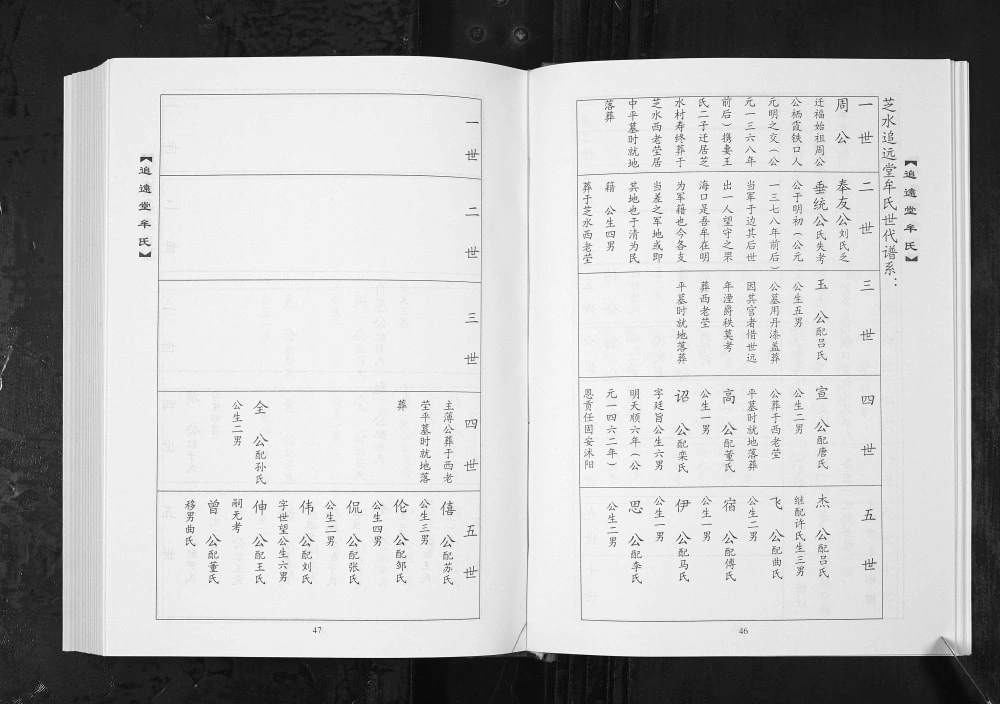 【追远堂牟氏】
芝水追远堂牟氏世代谱系：
一世
周公
迁福始祖周公
公栖霞铁口人
元明之交（公
元一三六八年
前后）携妻王
氏二子迁居芝
水村寿终葬于
芝水西老茔居
中平墓时就地
落葬
二世
奉友公刘氏乏
垂统公氏失考
公于明初（公元
一三七八年前后）
当军于边其后世
出一人望守之栗
海口是吾牟在明
为军籍也今各支
当差之军地或即
其地也于清为民
籍 公生四男
葬于芝水西老茔
三世
玉公配吕氏
公生五男
公墓用丹漆盖葬
因其官者惜世远
年湮爵秩莫考
葬西老茔
平墓时就地落葬
四世
宣公配唐氏
公生二男
公葬于西老茔
平墓时就地落葬
高公配董氏
公生一男
诏公配栾氏
字廷旨公生六男
明天顺六年（公
元一四六二年）
恩贡任固安沭阳
五世
杰公配吕氏
继配许氏生三男
飞公配曲氏
公生二男
宿公配傅氏
公生一男
伊公配马氏
公生一男
思公配李氏
公生二男
46
一世
二世
三世
四世
主薄公葬于西老
茔平墓时就地落
葬
全公配孙氏
公生二男
五世
僖公配苏氏
公生三男
伦公配邹氏
公生四男
侃公配张氏
公生二男
伟公配刘氏
字世望公生六男
伸公配王氏
嗣无考
曾公配董氏
移男曲氏
【追远堂牟氏】
47